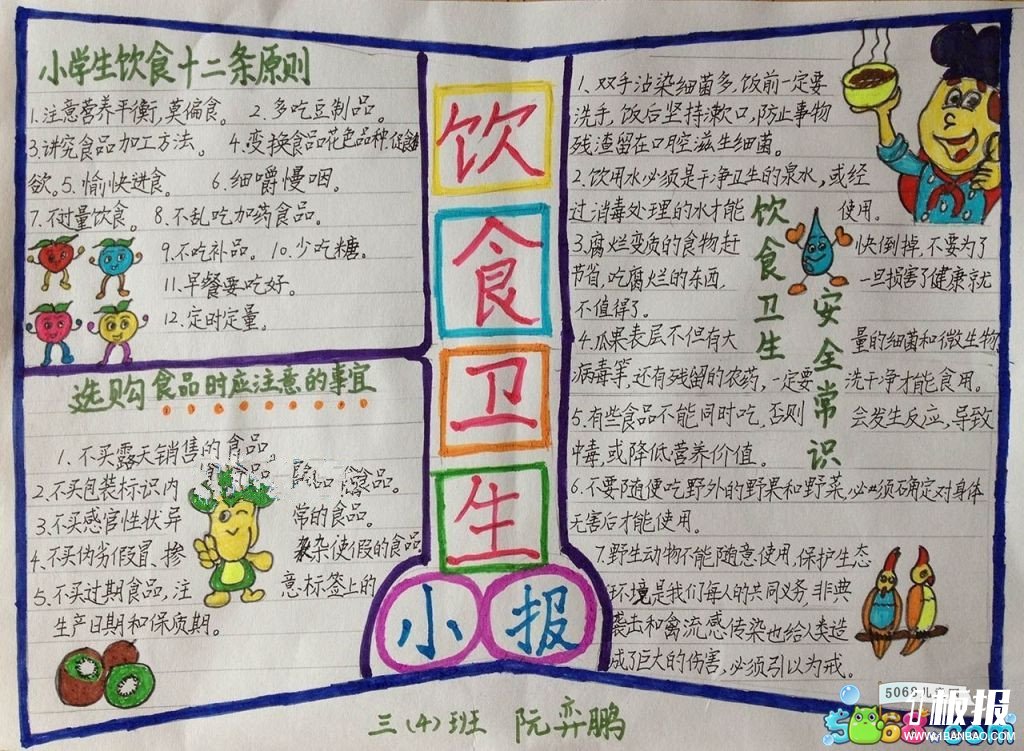 小学生饮食十二条原则
1.注意营养平衡,莫偏食。 2.多吃豆制品。
3.讲究食品加工方法。 4.变换食品花色品种.促食
欲。5.愉快进食。 6.细嚼慢咽。
7.不过量饮食。 8.不乱吃加药食品。
9.不吃补品。 10.少吃糖。
11.早餐要吃好。
12.定时定量。
选购食品时应注意的事宜
1.不买露天销售的食品
2.不买包装标识内 食品。
3.不买感官性状异 常的食品。
4.不买伪劣假冒、掺 杂使假的食品
5.不买过期食品,注 意标签上的
生产日期和保质期。
饮
食
卫
生
小报
1.双手沾染细菌多,饭前一定要
洗手,饭后坚持漱口,防止事物
残渣留在口腔滋生细菌。
2.饮用水必须是干净卫生的泉水,或经
过消毒处理的水才能 使用。
3.腐烂变质的食物赶 快倒掉,不要为了
节省,吃腐烂的东西, 一旦损害了健康就
不值得了。
4.瓜果表层不但有大 量的细菌和微生物
病毒等,还有残留的农药,一定要 洗干净才能食用。
5.有些食品不能同时吃,否则 会发生反应,导致
中毒,或降低营养价值。
6.不要随便吃野外的野果和野菜,必须确定对身体
无害后才能使用。
7.野生动物不能随意使用,保护生态
环境是我们每人的共同义务,非典
袭击和禽流感传染也给人类造
成了巨大的伤害,必须引以为戒。
饮食卫生
安全常识
三(4)班 阮弈鹏
5068儿
板报
5068.com
WWW.1BANBAO.COM